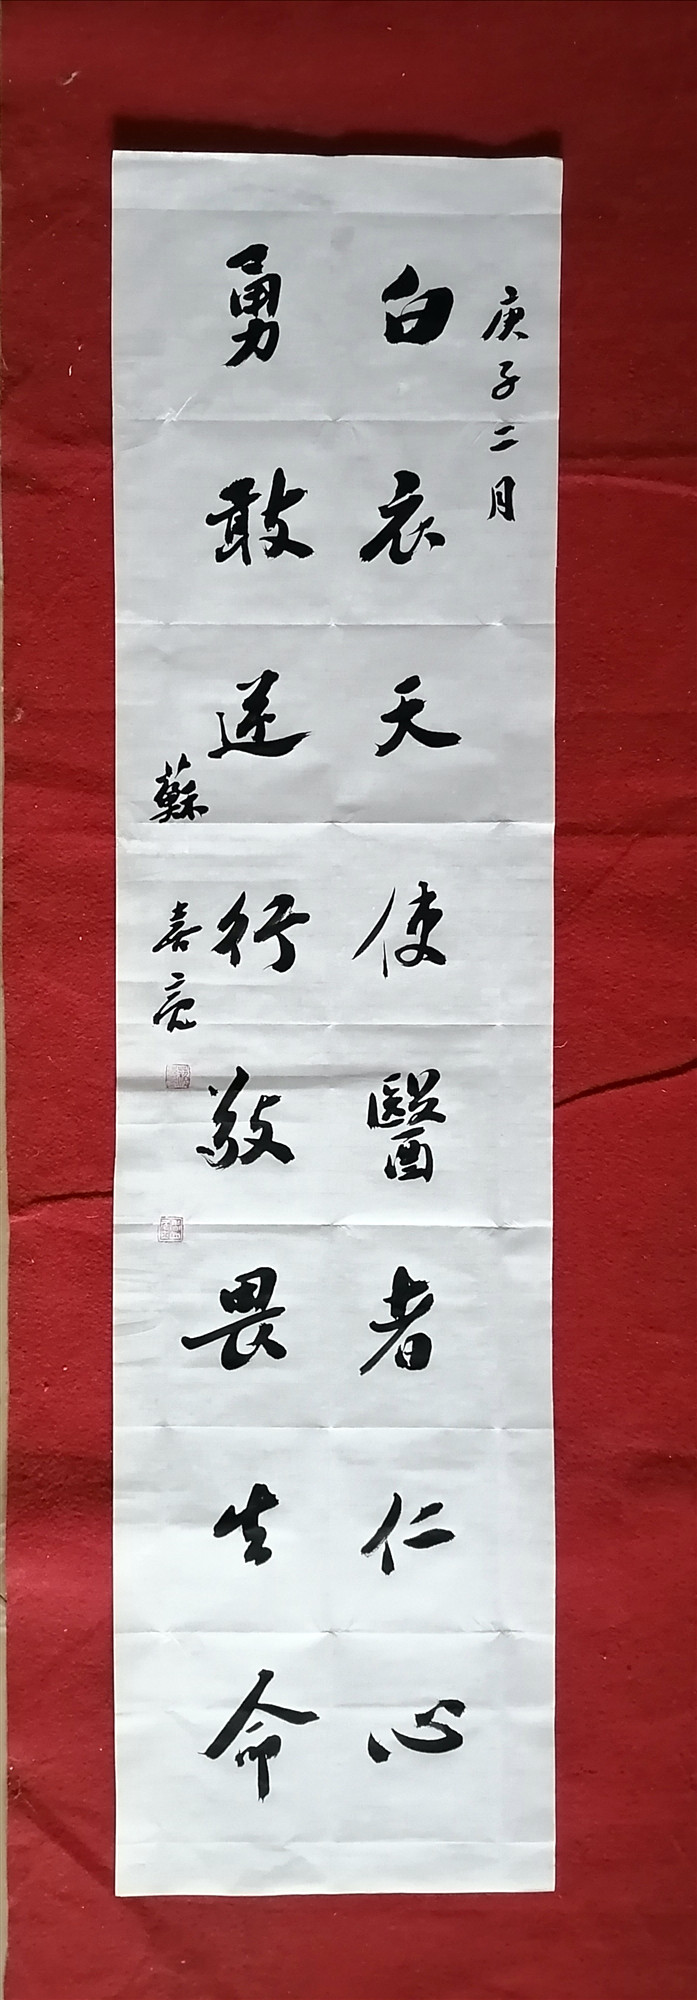 庚子二月
白衣天使醫者仁心
勇敢逆行敬畏生命
蘇喜亮